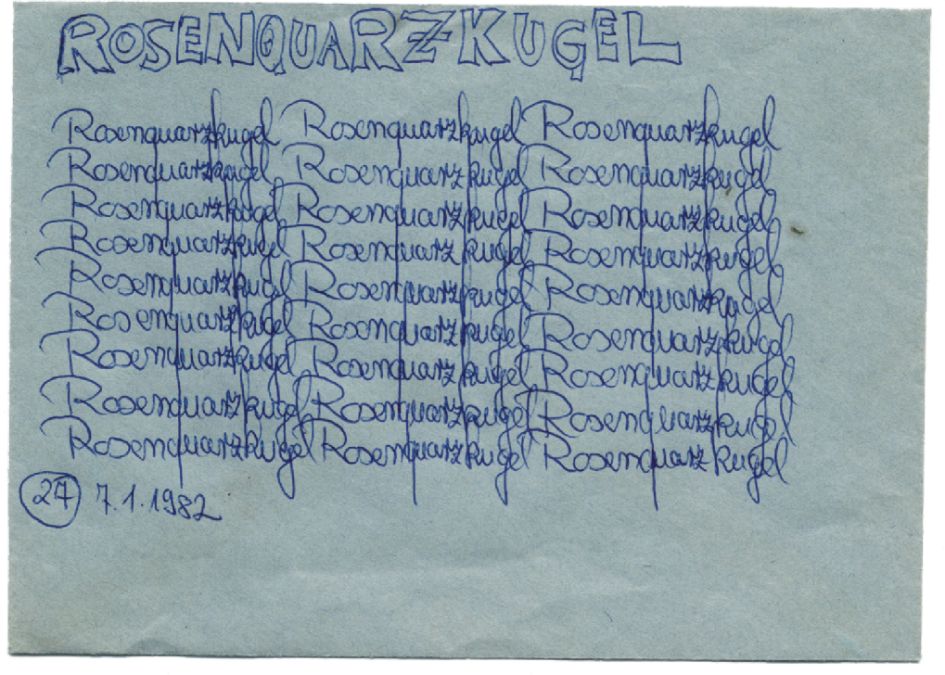 ROSENQUARZKUGEL
Rosenquarzkugel Rosenquarzkugel Rosenquarzkugel
Rosenquarzkugel Rosenquarzkugel Rosenquarzkugel
Rosenquarzkugel Rosenquarzkugel Rosenquarzkugel
Rosenquarzkugel Rosenquarzkugel Rosenquarzkugel
Rosenquarzkugel Rosenquarzkugel Rosenquarzkugel
Rosenquarzkugel Rosenquarzkugel Rosenquarzkugel
Rosenquarzkugel Rosenquarzkugel Rosenquarzkugel
Rosenquarzkugel Rosenquarzkugel Rosenquarzkugel
Rosenquarzkugel Rosenquarzkugel Rosenquarzkugel
27 7.1.1982